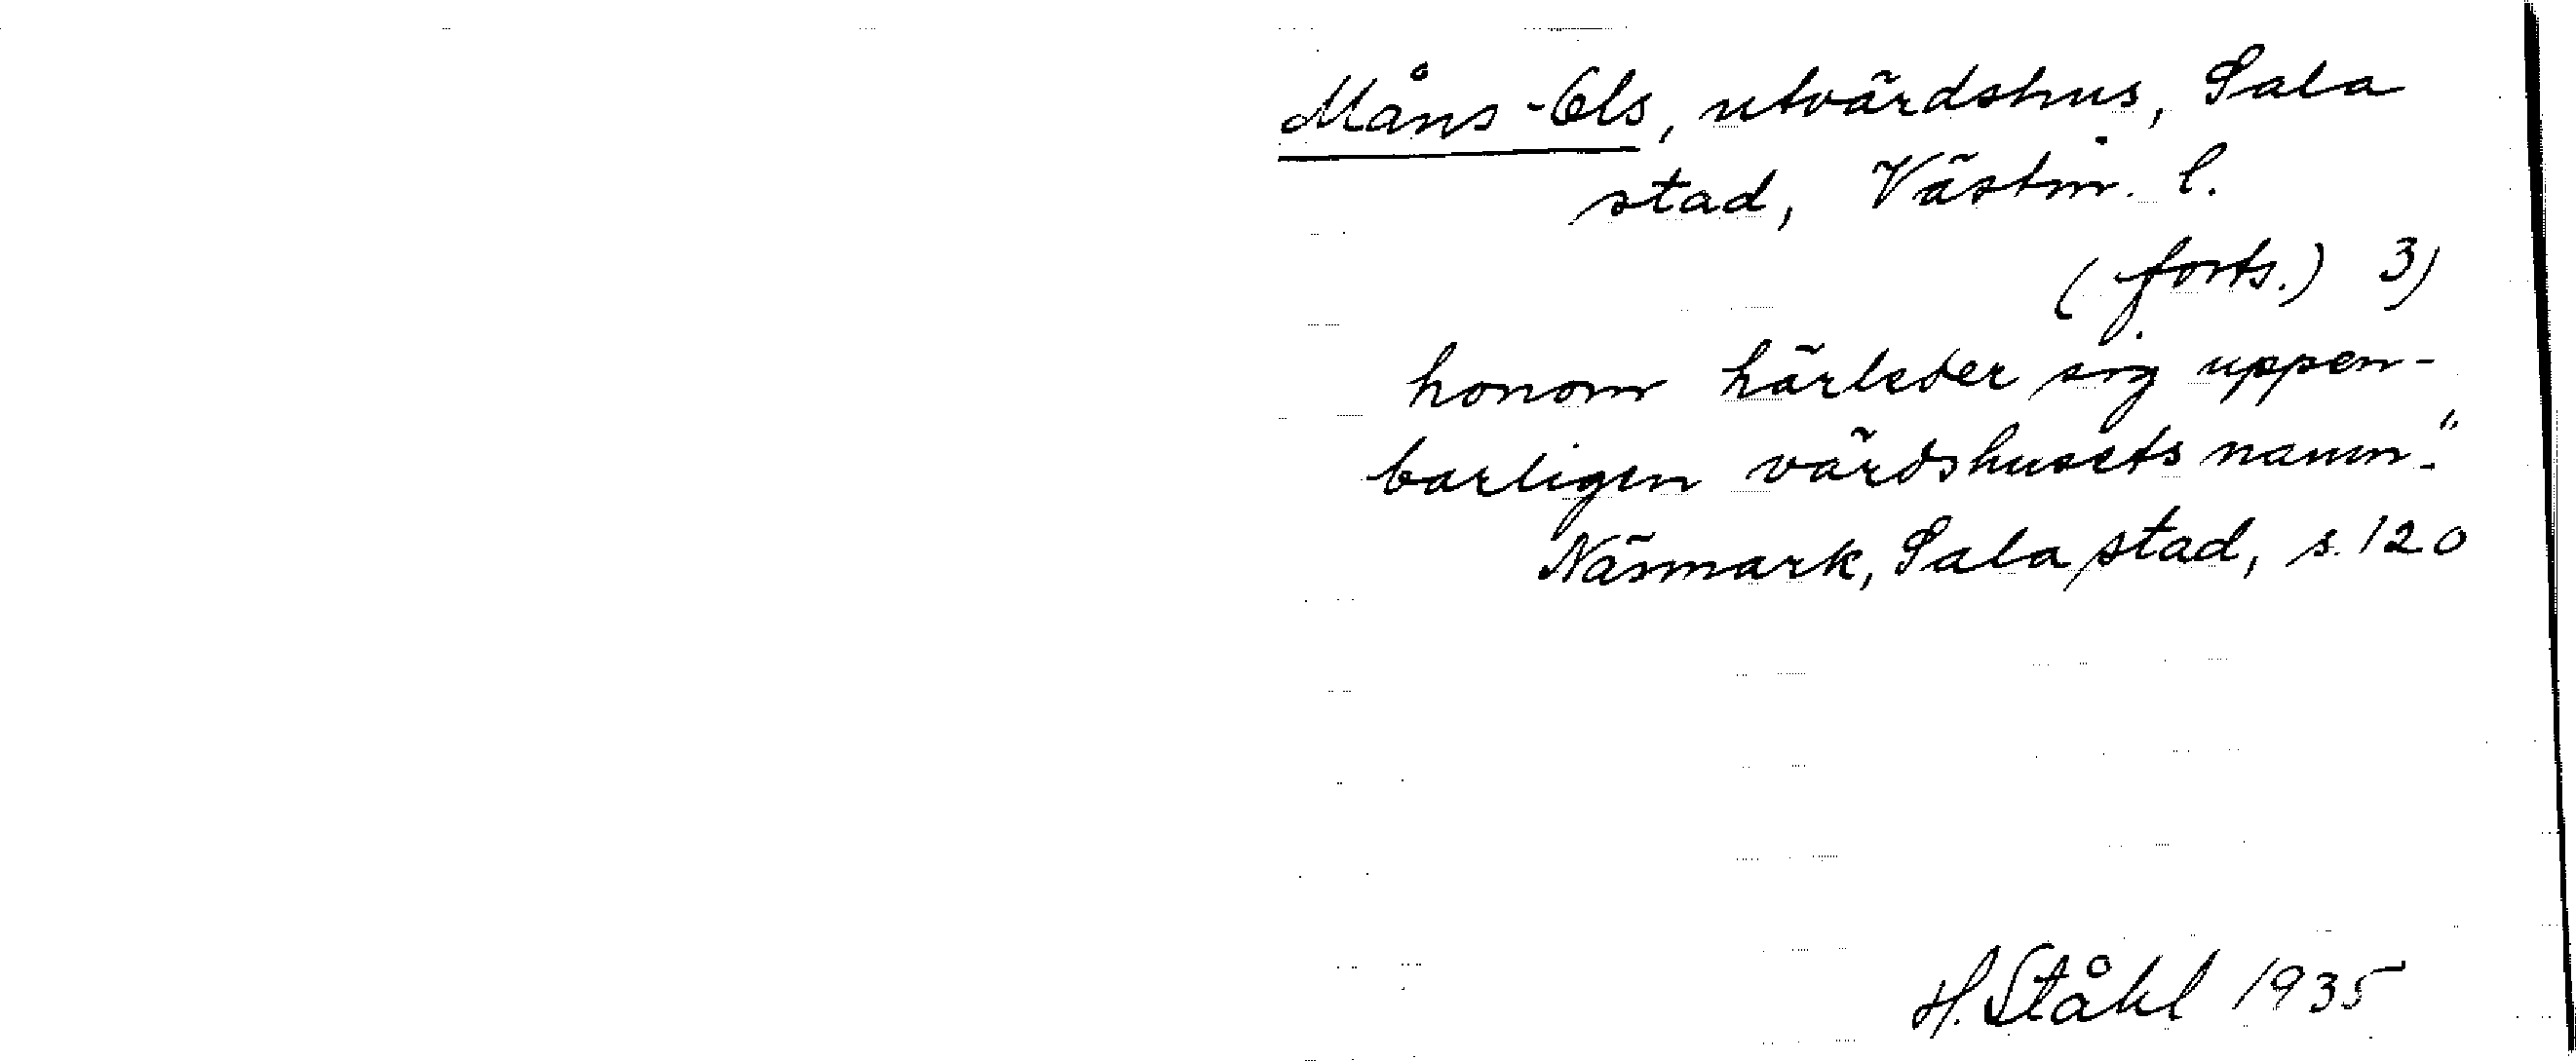 Måns-Ols, utvärdshus, Sala
stad, Västm. l.
(forts.) 3)
honom härleder sig uppen-
barligen värdshusets namn."
Näsmark, Sala stad, s. 120
H. Ståhl 1935